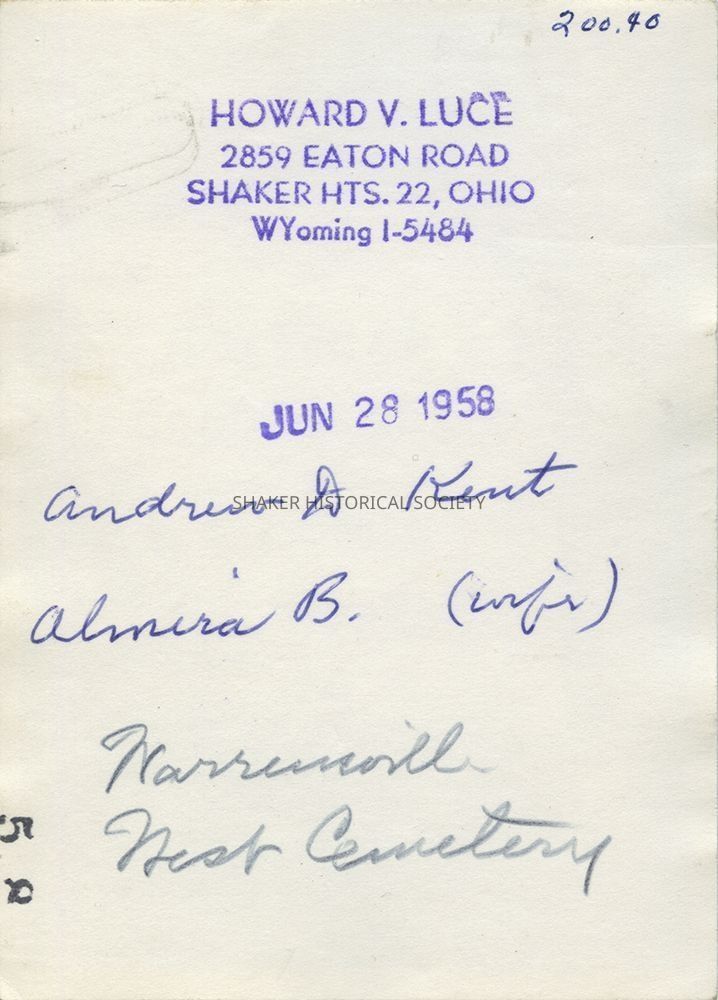 200.40
HOWARD V. LUCE
2859 EATON ROAD
SHAKER HTS. 22, OHIO
WYoming 1-5484
JUN 28 1958
Andrew D Kent
SHAKER HISTORICAL SOCIETY
Almira B. (wife)
Warrensville
West Cemetery
5